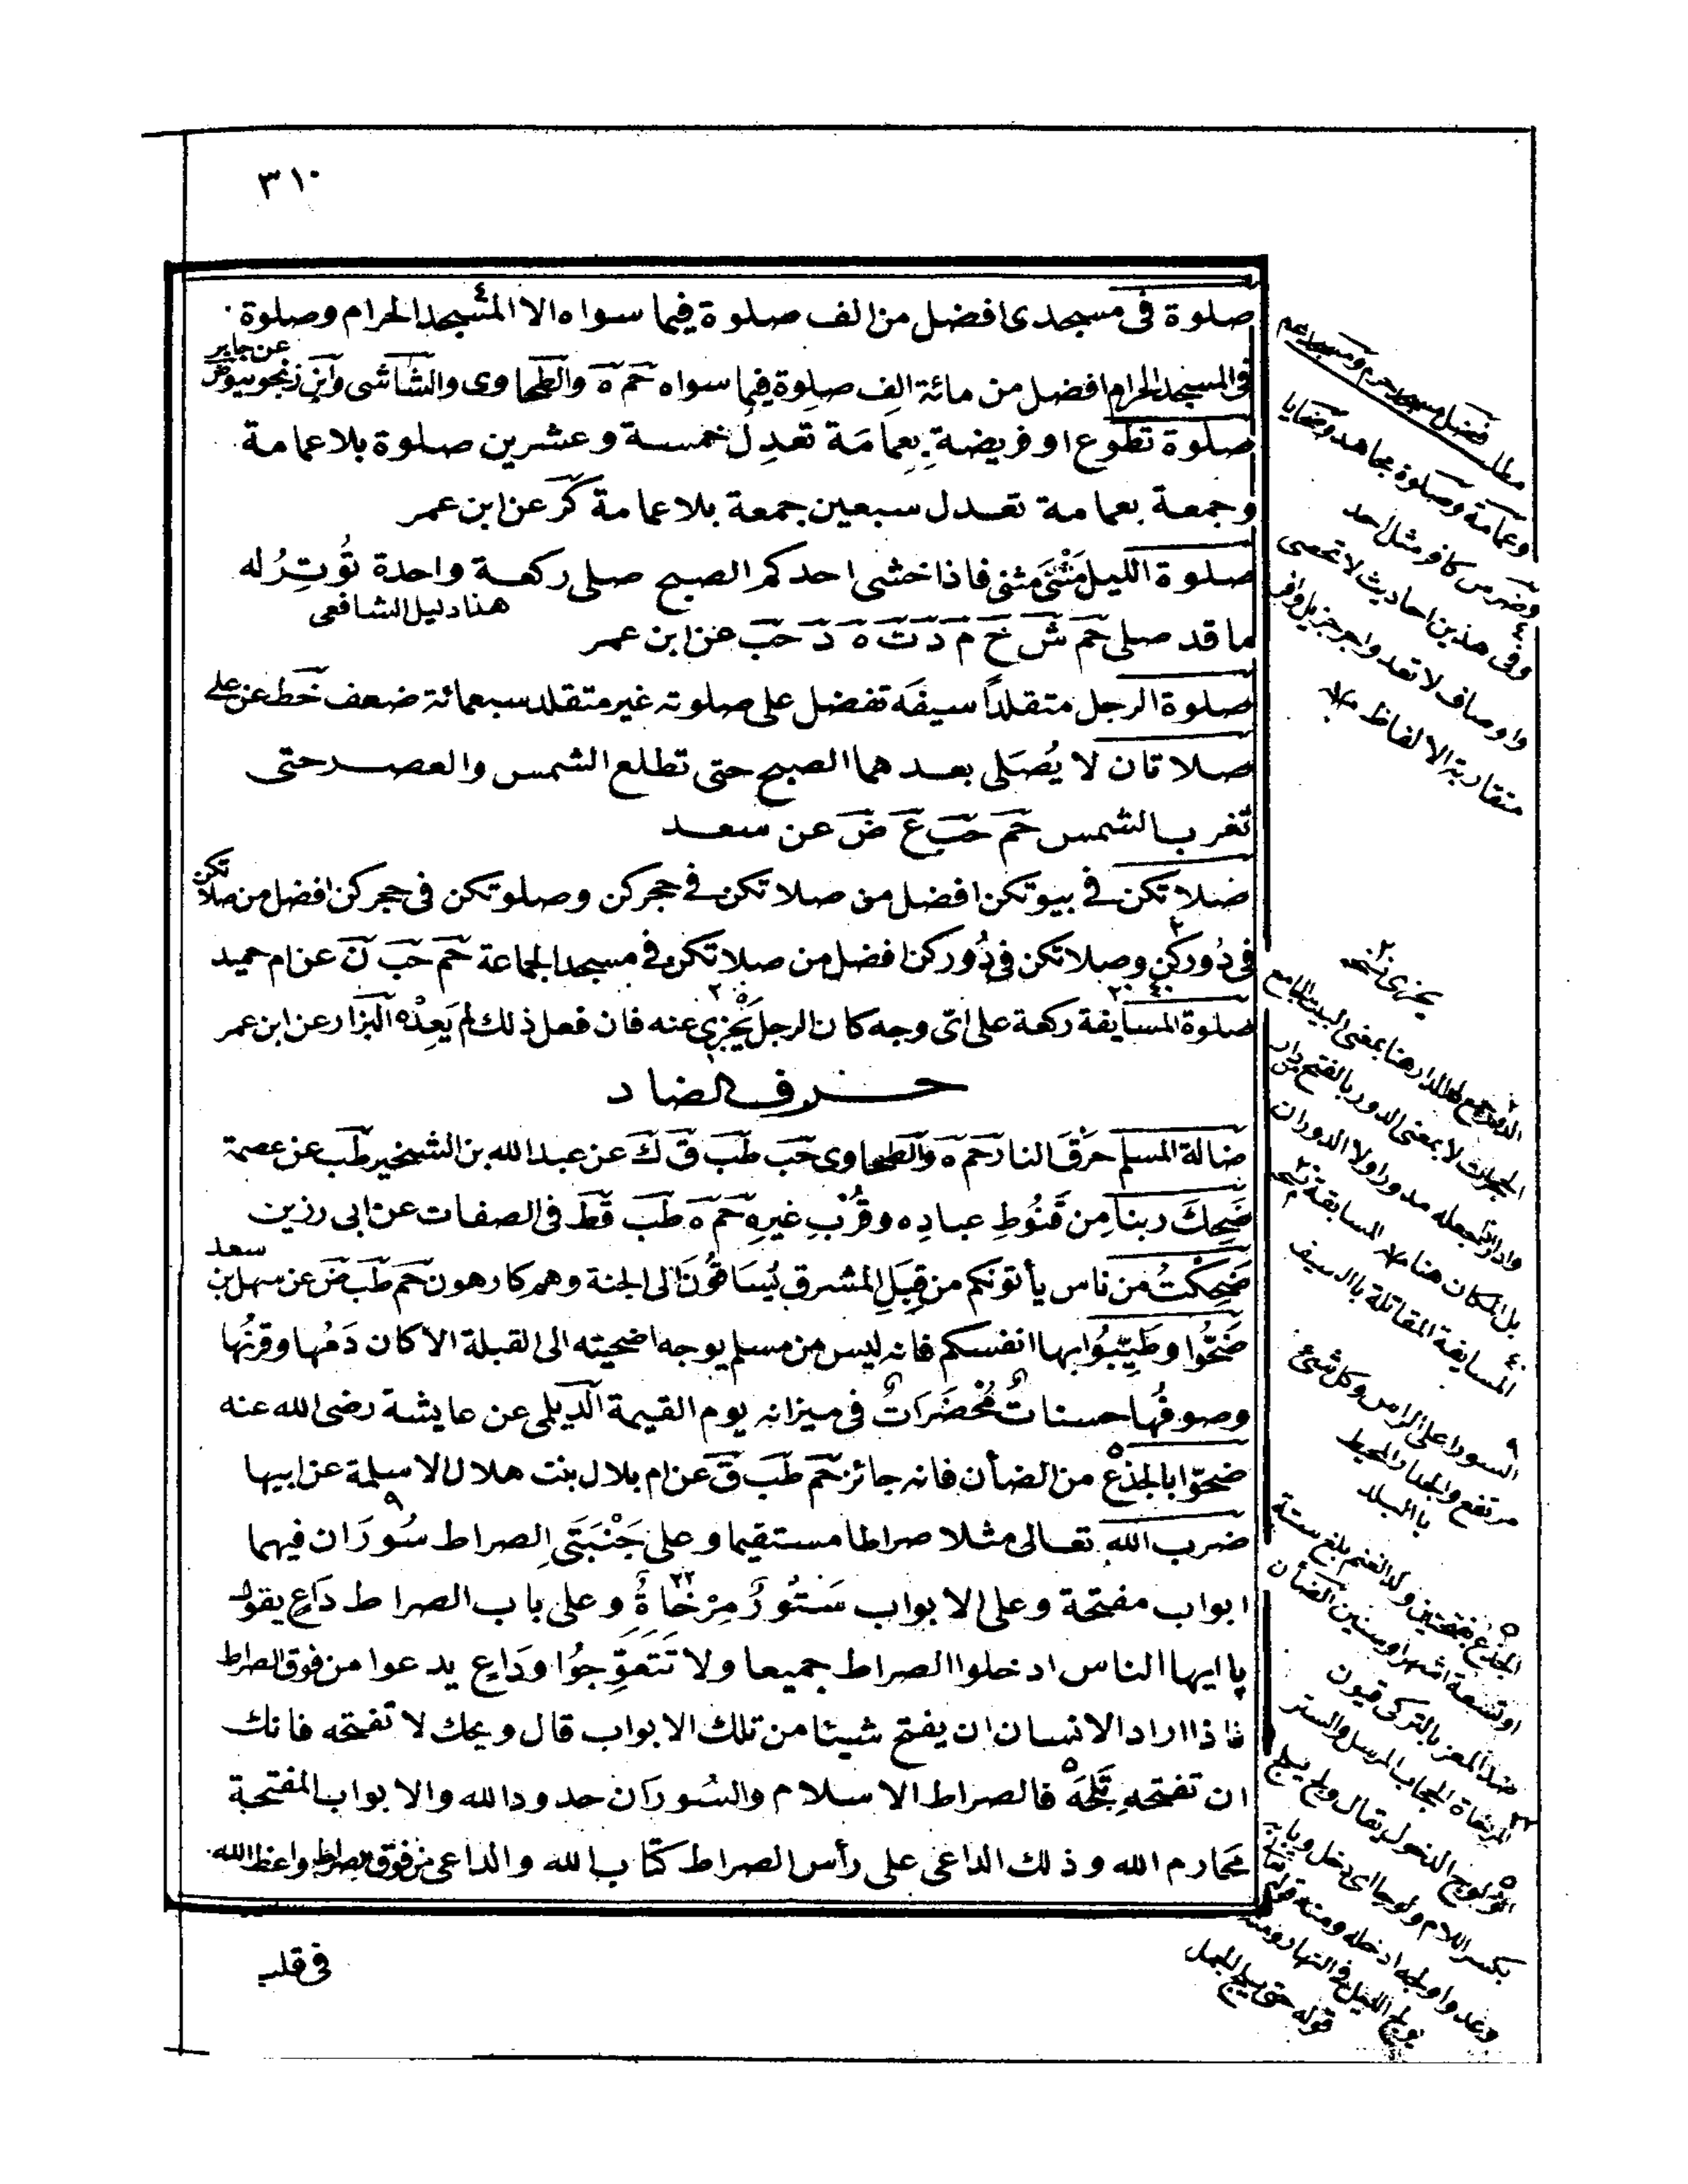 ٣١٠
صلوة فى مسجدى افضل من الف صلوة فيما سواه الا المسجد الحرام وصلوة
فى المسجد الحرام افضل من مائة الف صلوة فيما سواه حم ه والطحاوى والشاشى وابن زنجويه وض
عن جابر
صلوة تطوع او فريضة بعمامة تعدل خمسة وعشرين صلوة بلا عمامة
وجمعة بعمامة تعدل سبعين جمعة بلا عمامة كر عن ابن عمر
صلوة الليل مَثْنَى مثنى فاذا خشى احدكم الصبح صلى ركعة واحدة تُوتِرُ له
هذا دليل الشافعى
ما قد صلى حم ش خ م د ت ه د حب عن ابن عمر
صلوة الرجل متقلداً سيفه تفضل على صلوته غير متقلد سبعمائة ضعف خط عن على
صلاتان لا يُصَلى بعدهما الصبح حتى تطلع الشمس والعصر حتى
تغرب الشمس حم حب ع ض عن سعد
صلاتكن فى بيوتكن افضل من صلاتكن فى حجركن وصلوتكن فى حجركن افضل من صلاتكن
فى دُوركن وصلاتكن فى دُوركن افضل من صلاتكن فى مسجد الجماعة حم حب ن عن ام حميد
صلوة المسايفة ركعة على اىّ وجه كان الرجل يُجْزِى عنه فان فعل ذلك لم يَعِدْه البزار عن ابن عمر
حرف الضاد
ضالة المسلم حَرَقَ النار حم ه والطحاوى حب طب ق ك عن عبد الله بن الشخير طب عن عصمة
ضَحِكَ ربنا مِن قُنُوطِ عبادِه وقُرْبِ غيرِه حم ه طب قط فى الصفات عن ابى رزين
ضَحِكْتُ من ناس يأتونكم من قِبَلِ المشرق يُسَاقُونَ الى الجنة وهم كارهون حم طب ض عن سهل بن سعد
ضَحُّوا وطَيِّبُوا بها انفسكم فانه ليس من مسلم يوجه اضحيته الى القبلة الا كان دَمُها وقرنُها
وصوفُها حسناتٌ مُحْضَرَاتٌ فى ميزانه يوم القيمة الديلمى عن عايشة رضى الله عنه
ضحوّا بالجذع من الضأن فانه جائز حم طب ق عن ام بلال بنت هلال الاسلمية عن ابيها
ضرب الله تعالى مثلا صراطا مستقيما وعلى جَنْبَتَىِ الصراط سُورَان فيهما
ابواب مفتحة وعلى الابواب سَتُورٌ مِرْخَاةٌ وعلى باب الصراط دَاعٍ يقول
يا ايها الناس ادخلوا الصراط جميعا ولا تَتَعَوَّجُوا ودَاعٍ يدعوا من فوق الصراط
فاذا اراد الانسان ان يفتح شيئا من تلك الابواب قال ويحك لا تفتحه فانك
ان تفتحهِ تَلِجَه فالصراط الاسلام والسُورَان حدود الله والابواب المفتحة
محارم الله وذلك الداعى على رأس الصراط كتاب الله والداعى من فوق الصراط واعظ الله
فى قلب
مطلب فضل مسجد حرم ومسجد
وعمامة وصلوة مجاهد وضحايا
وضرس كافر مثل احد
وفى هذين احاديث لا تحصى
واوصاف لا تعد واجر جزيل وافر
متقاربة الالفاظ
يجزى نسخه
الدار هنا بمعنى البيت الجامع
الحجرات لا بمعنى الدور بالفتح
واداره جعله مدورا ولا الدوران
بل المكان هنا المسابقة نسخه
المسايفة المقاتلة بالسيف
السور اعلى الراس وكل شئ
مرتفع والجدار المحيط
بالبلد
الجذع بفتحتين ولد الغنم بلغ ستة
او تسعة اشهر او سنين الضأن
ضد المعز بالتركى قيون
المرخاة الحجاب المرسل والستر
الولوج الدخول يقال ولج يلج
بكسر اللام ولوجا اى دخل وبابه
وعد واولجه ادخله ومنه قوله
يولج الليل فى النهار ومنه
قوله حتى يلج الجمل